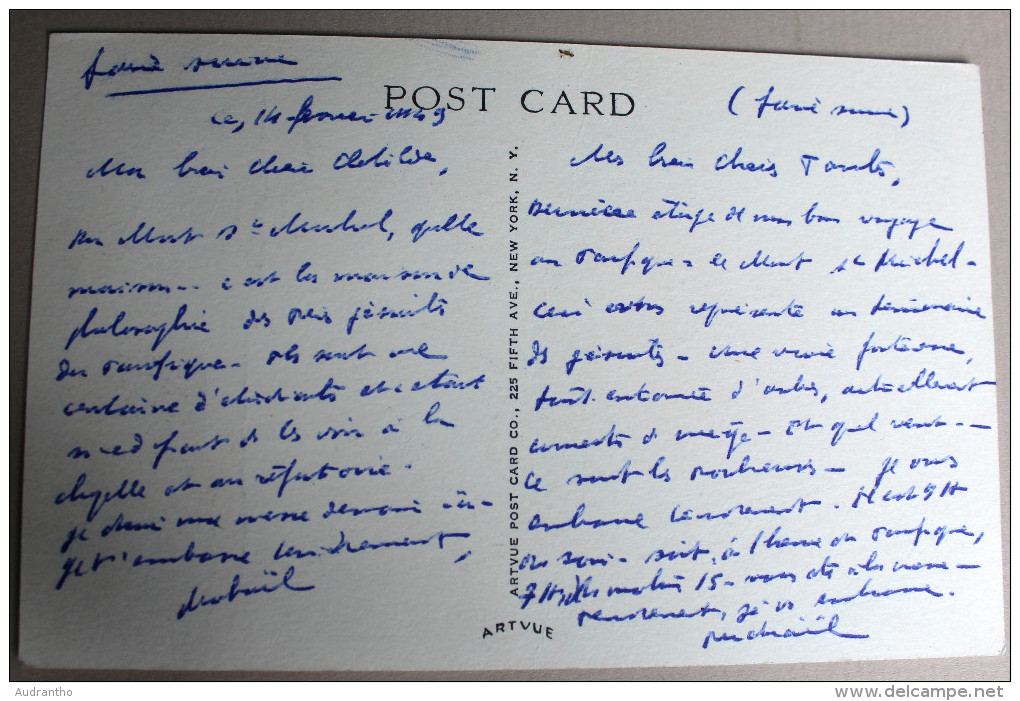 faire suivre
POST CARD
(faire suivre)
ce, 14 février 1949
Ma bien chère Clotilde,
Mes biens chers Parents,
Mont St Michel, quelle
maison.. c'est la maison de
philosophie des pères jésuites
du Pacifique. Ils sont une
centaine d'étudiants
de les voir à la
chapelle et au réfectoire.
je dirai une messe demain
je t'embrasse tendrement,
Michaël
Dernière étape de mon bon voyage
au Pacifique le Mont St Michel -
Ceci représente un séminaire
des jésuites - Une vraie forteresse,
tout entourée d'arbres, actuellement
couverts de neige - Et quel vent -
Ce sont les - je vous
embrasse tendrement. Il est 9 H
du soir - soit, à l'heure du Pacifique,
7 H du matin 15 - vous à la messe -
tendrement, je vs embrasse.
Michaël
ARTVUE POST CARD CO., 225 FIFTH AVE., NEW YORK, N. Y.
ARTVUE
Audrantho
www.delcampe.net